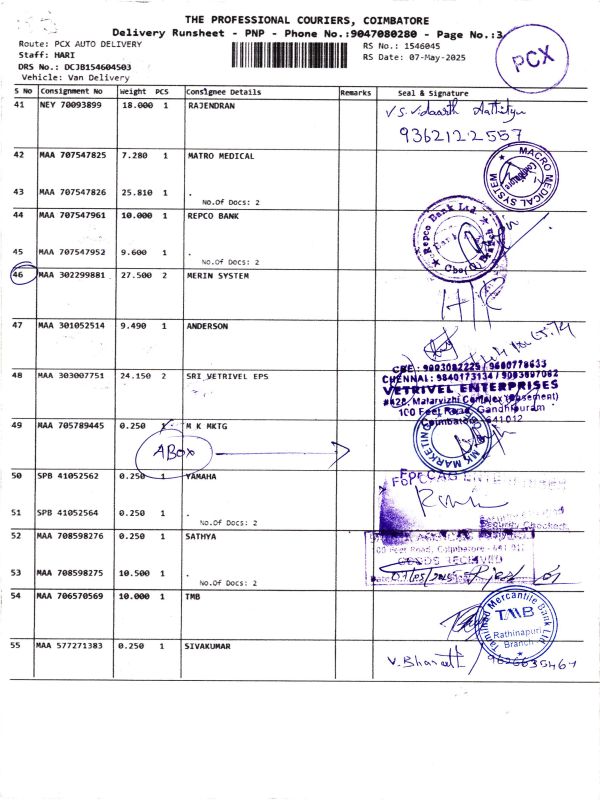 THE PROFESSIONAL COURIERS, COIMBATORE
Delivery Runsheet - PNP - Phone No.:9047080280 - Page No.:3
Route: PCX AUTO DELIVERY
RS No.: 1546045
Staff: HARI
RS Date: 07-May-2025
DRS No.: DCJB154604503
Vehicle: Van Delivery
PCX
S No Consignment No Weight PCS Consignee Details Remarks Seal & Signature
41 NEY 70093899 18.000 1 RAJENDRAN
9362122557
42 MAA 707547825 7.280 1 MATRO MEDICAL
MACRO MEDICAL SYSTEM
43 MAA 707547826 25.810 1 .
No.Of Docs: 2
44 MAA 707547961 10.000 1 REPCO BANK
Repco Bank Ltd
45 MAA 707547952 9.600 1 .
No.Of Docs: 2
46 MAA 302299881 27.500 2 MERIN SYSTEM
47 MAA 301052514 9.490 1 ANDERSON
48 MAA 303007751 24.150 2 SRI VETRIVEL EPS
CHENNAI: 9840173134 /
VETRIVEL ENTERPRISES
100 Feet Road, Gandhipuram
Coimbatore 641 012
49 MAA 705789445 0.250 1 M K MKTG
MK MARKETING
ABox
50 SPB 41052562 0.250 1 YAMAHA
For
51 SPB 41052564 0.250 1 .
No.Of Docs: 2
Security Checked
52 MAA 708598276 0.250 1 SATHYA
Feet Road, Coimbatore - 641 012
GOODS RECEIVED
53 MAA 708598275 10.500 1 .
No.Of Docs: 2
54 MAA 706570569 10.000 1 TMB
Tamilnad Mercantile Bank Ltd
TMB
Rathinapuri
Branch
55 MAA 577271383 0.250 1 SIVAKUMAR
V. Bharath